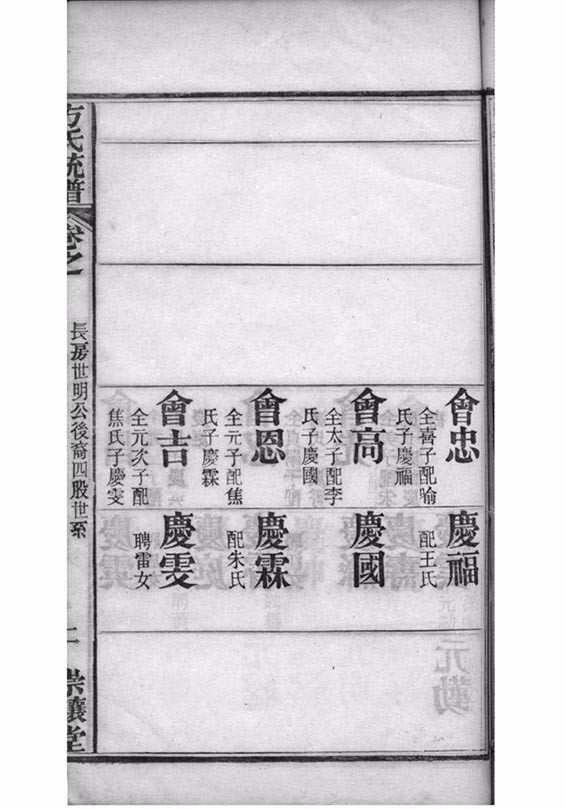 會忠
全善子配喻
氏子慶福
會高
全太子配李
氏子慶國
會恩
全元子配焦
氏子慶霖
會吉
全元次子配
焦氏子慶雯
慶福
配王氏
慶國
慶霖
配朱氏
慶雯
聘雷女
方氏統譜
卷之
長房世明公後裔四股世系
二